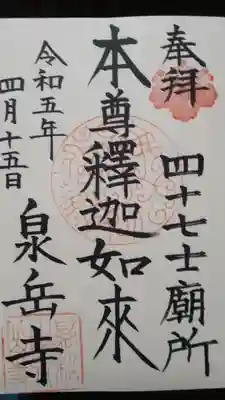 奉拝
四十七士廟所
本尊釋迦如来
令和五年
四月十五日
泉岳寺